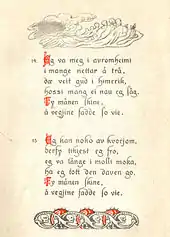 14. Eg va meg i avromheimi
i mange nettar å trå,
dæ veit gud i himerik,
hossi mang ei nau eg såg.
Ty månen skine,
å vegjine fadde so vie.
15. Eg kan noko av kvorjom,
derfy tikjest eg fro,
eg va længe i molli moka,
ha eg tott den daven go.
Ty månen skine,
å vegjine fadde so vie.